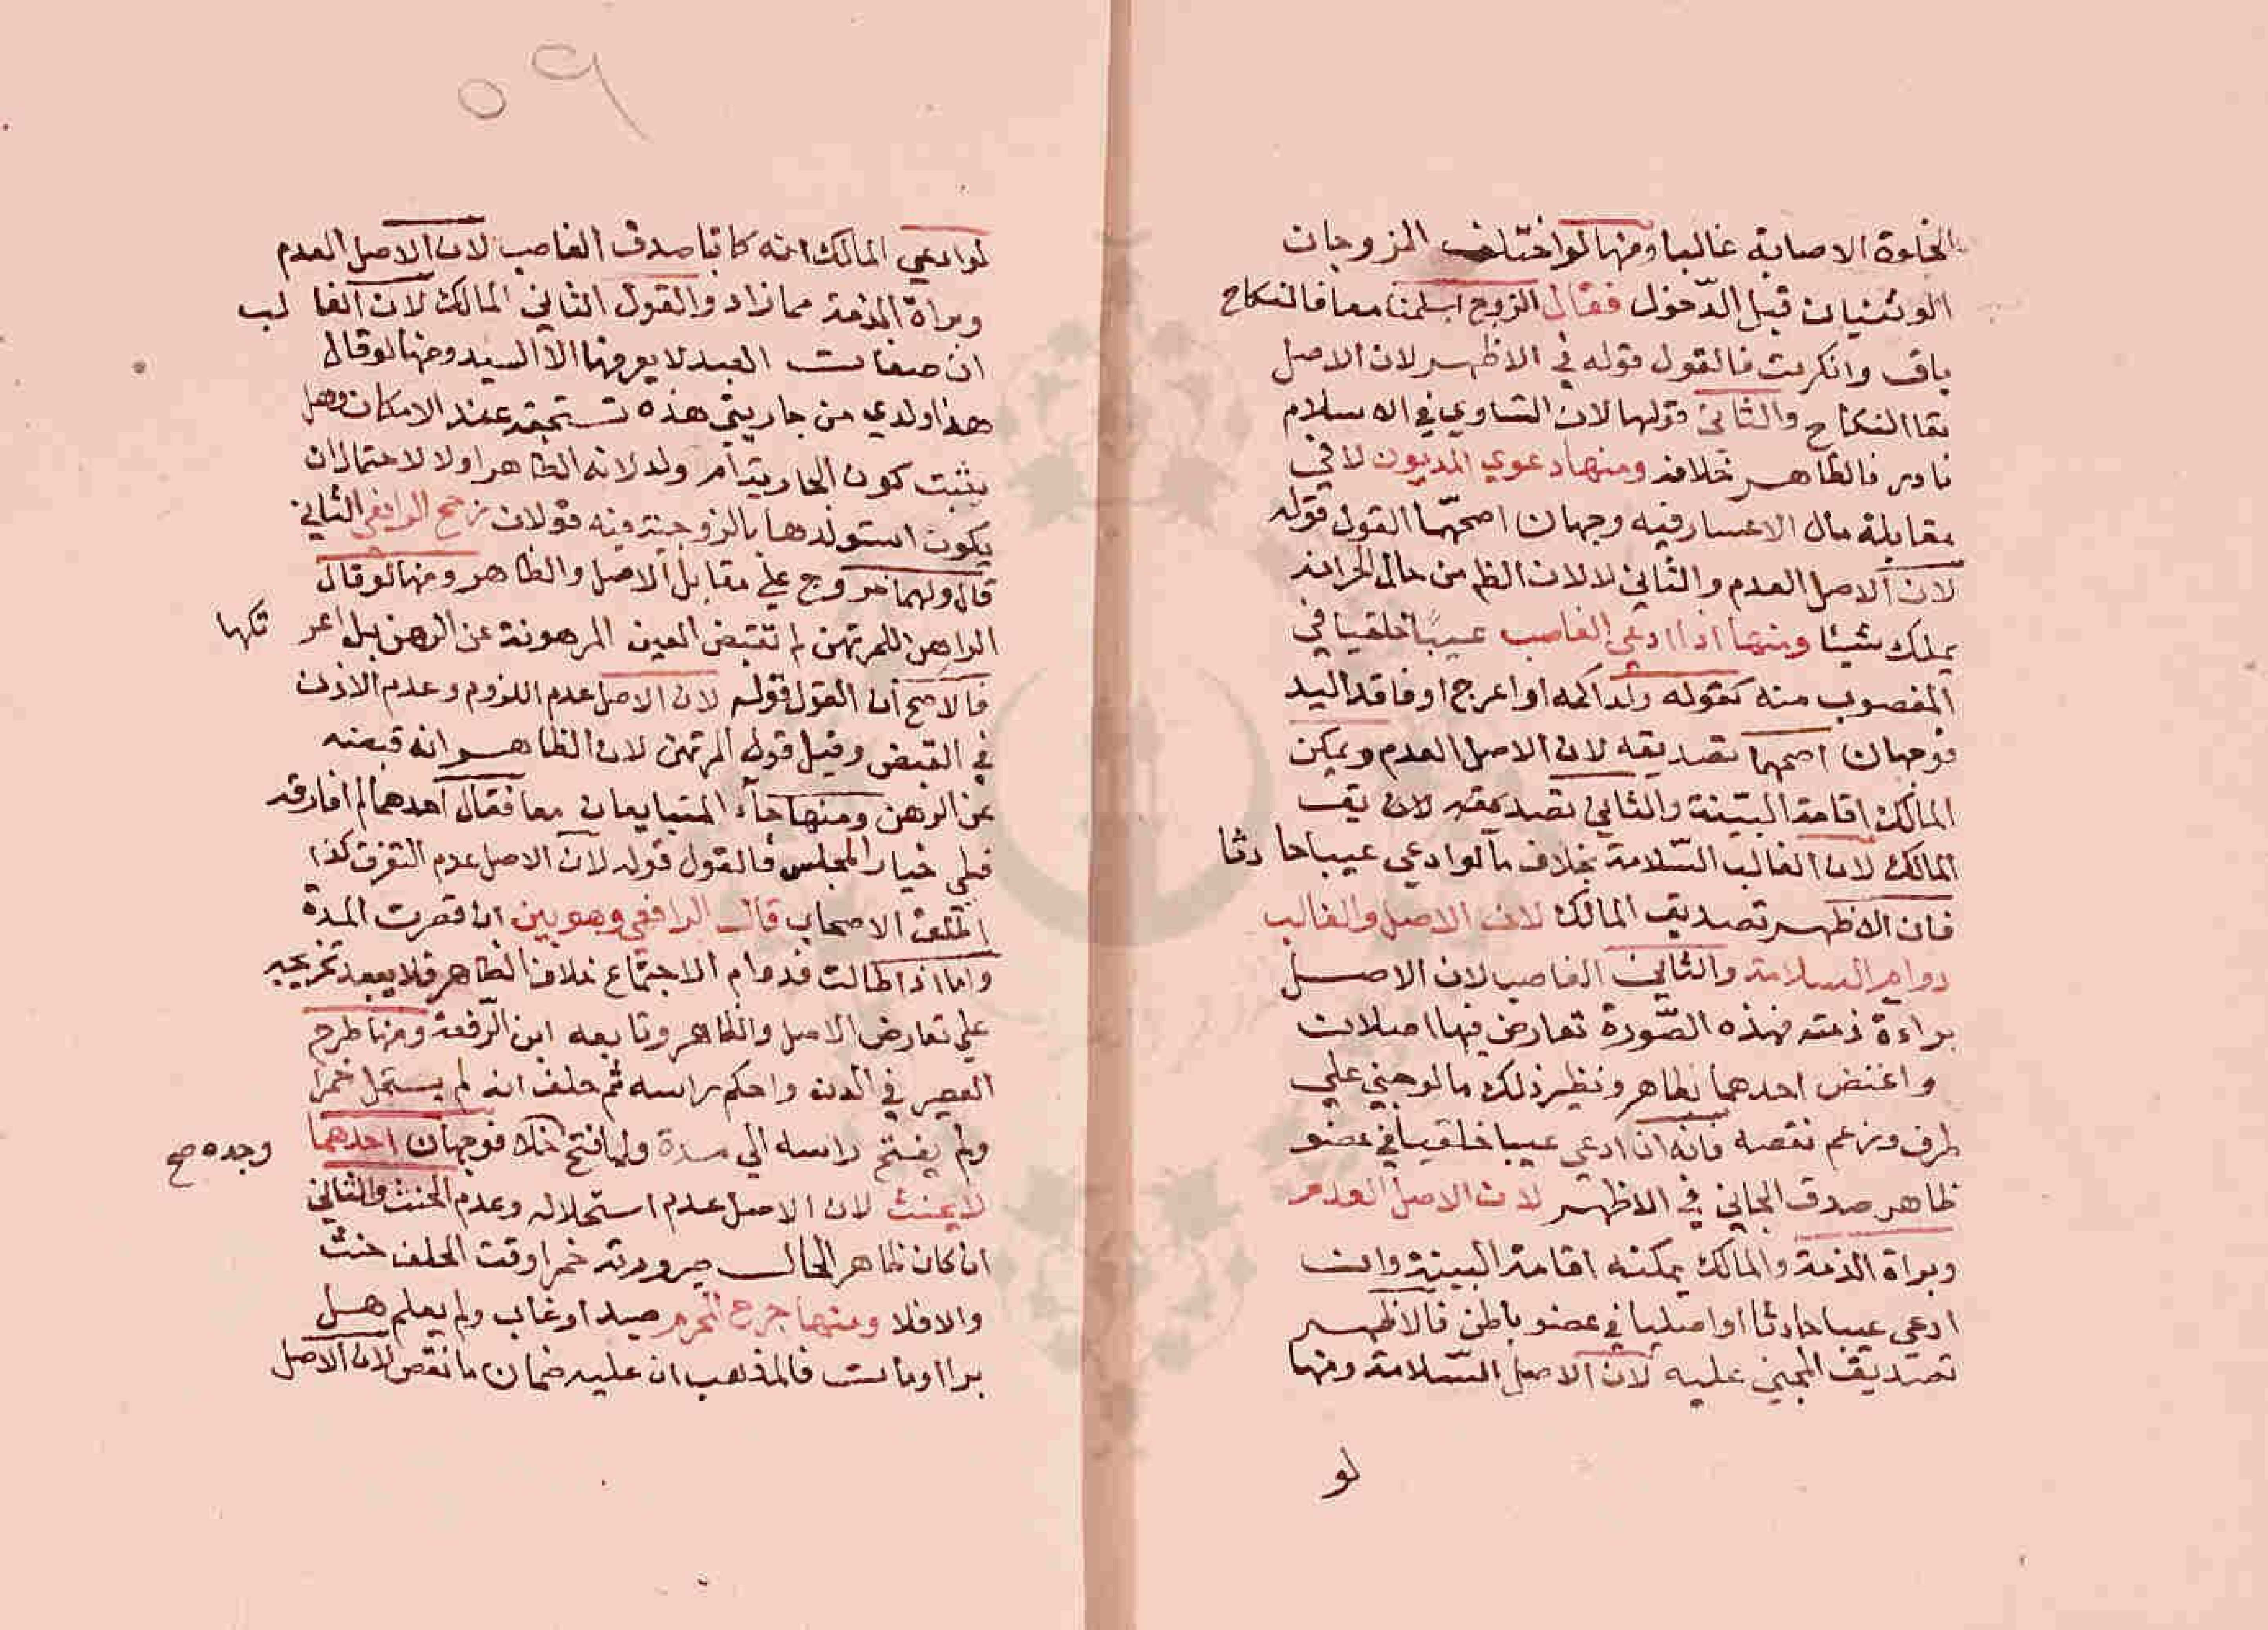 الخلوة الاصابة غالبا ومنها لو اختلف الزوجان
الوثنيان قبل الدّخول فقال الزوج اسلمنا معا فالنكاح
باق وانكرت فالقول قوله في الاظهر لان الاصل
بقا النكاح والثاني قولها لان التساوي في الاسلام
نادر فالظاهر خلافه ومنها دعوي المديون لا في
مقابلة مال الاعسار فيه وجهان اصحّهما القول قوله
لان الاصل العدم والثاني لا لان الظ من حال الحر انه
يملك شيئا ومنها اذا ادعي الغاصب عيبًا خلقيا في
المغصوب منه كقوله ولد اكمه او اعرج او فاقد اليد
فوجهان اصحهما تصديقه لان الاصل العدم ويمكن
المالك اقامة البيّنة والثاني تصديق
المالك لان الغالب السّلامة بخلاف ما لو ادعي عيبا حادثا
فان الاظهر تصديق المالك لان الاصل والغالب
دوام السلامة والثاني الغاصب لان الاصل
براءة ذمته فهذه الصّورة تعارض فيها اصلان
واعتض احدهما بظاهر ونظير ذلك ما لو جني علي
طرف وزعم نقصه فانه ان ادعي عيبا خلقيا في عضو
ظاهر صدق الجاني في الاظهر لان الاصل العدم
وبراة الذمة والمالك يمكنه اقامة البينة وان
ادعي عيبا حادثا او اصليا في عضو باطن فالاظهر
تصديق المجني عليه لان الاصل السّلامة ومنها
لو
٥٩
لو ادعي المالك انه كاتبا صدق الغاصب لان الاصل العدم
وبراة الذمة مما زاد والقول الثاني المالك لان الغالب
ان صفات العبد لا يعرفها الا السيد ومنها لو قال
هذا ولدي من جاريتي هذه لحقه عند الامكان وهل
يثبت كون الجارية ام ولد لانه الظاهر او لا لاحتمال ان
يكون استولدها بالزوجية فيه قولان رجح الرافعي الثاني
قال ولهما خروج علي مقابل الاصل والظاهر ومنها لو قال
الراهن للمرتهن لم تقبض العين المرهونة عن الرهن بل اعرتكها
فالاصح ان القول قوله لان الاصل عدم اللزوم وعدم الاذن
في القبض وقيل قول المرتهن لان الظاهر انه قبضه
عن الرهن ومنها جآء المتبايعان معا فقال احدهما لم افارقه
فلي خيار المجلس فالقول قوله لان الاصل عدم التفرق كذا
اطلق الاصحاب قال الرافعي وهو بين ان قصرت المدة
واما اذا طالت فدوام الاجتماع خلاف الظاهر فلا يبعد تخريجه
علي تعارض الاصل والظاهر وتابعه ابن الرّفعة ومنها طرح
العصير في الدن واحكم راسه ثم حلف انه لم يستحل خمرا
ولم يفتح راسه الي مدة ولما فتح خلا فوجهان احدهما
وجده صح
لا يحنث لان الاصل عدم استحلاله وعدم الحنث والثاني
ان كان ظاهر الحال صيرورته خمرا وقت الحلف حنث
والا فلا ومنها جرح المحرم صيدا وغاب ولم يعلم هل
برا او مات فالمذهب ان عليه ضمان ما نقص لان الاصل